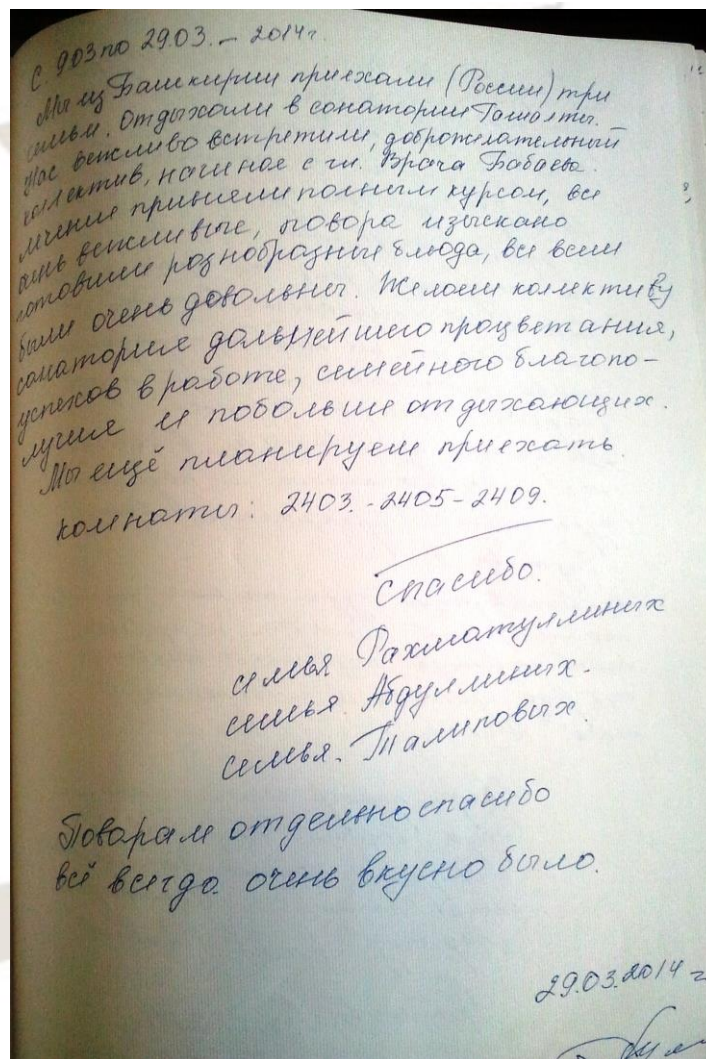 С 903 по 29.03. – 2014 г.
Мы из Башкирии приехали (России) три
семьи. Отдыхали в санатории Ташалты.
Нас вежливо встретили, доброжелательный
коллектив, начиная с гл. Врача Бабаева.
лечение приняли полным курсом, все
очень вежливые, повора изыскано
готовили разнобразные блюда, все всем
были очень довольны. Желаем коллективу
санатория дальнейшего процветания,
успехов в работе, семейного благопо-
лучия и побольше отдыхающих.
Мы ещё планируем приехать.
комнаты: 2403. - 2405 - 2409.
Спасибо.
семья Рахматуллиных
семья Абдуллиных.
семья. Талиповых.
Поварам отдельно спасибо
всё всегда очень вкусно было.
29.03.2014 г